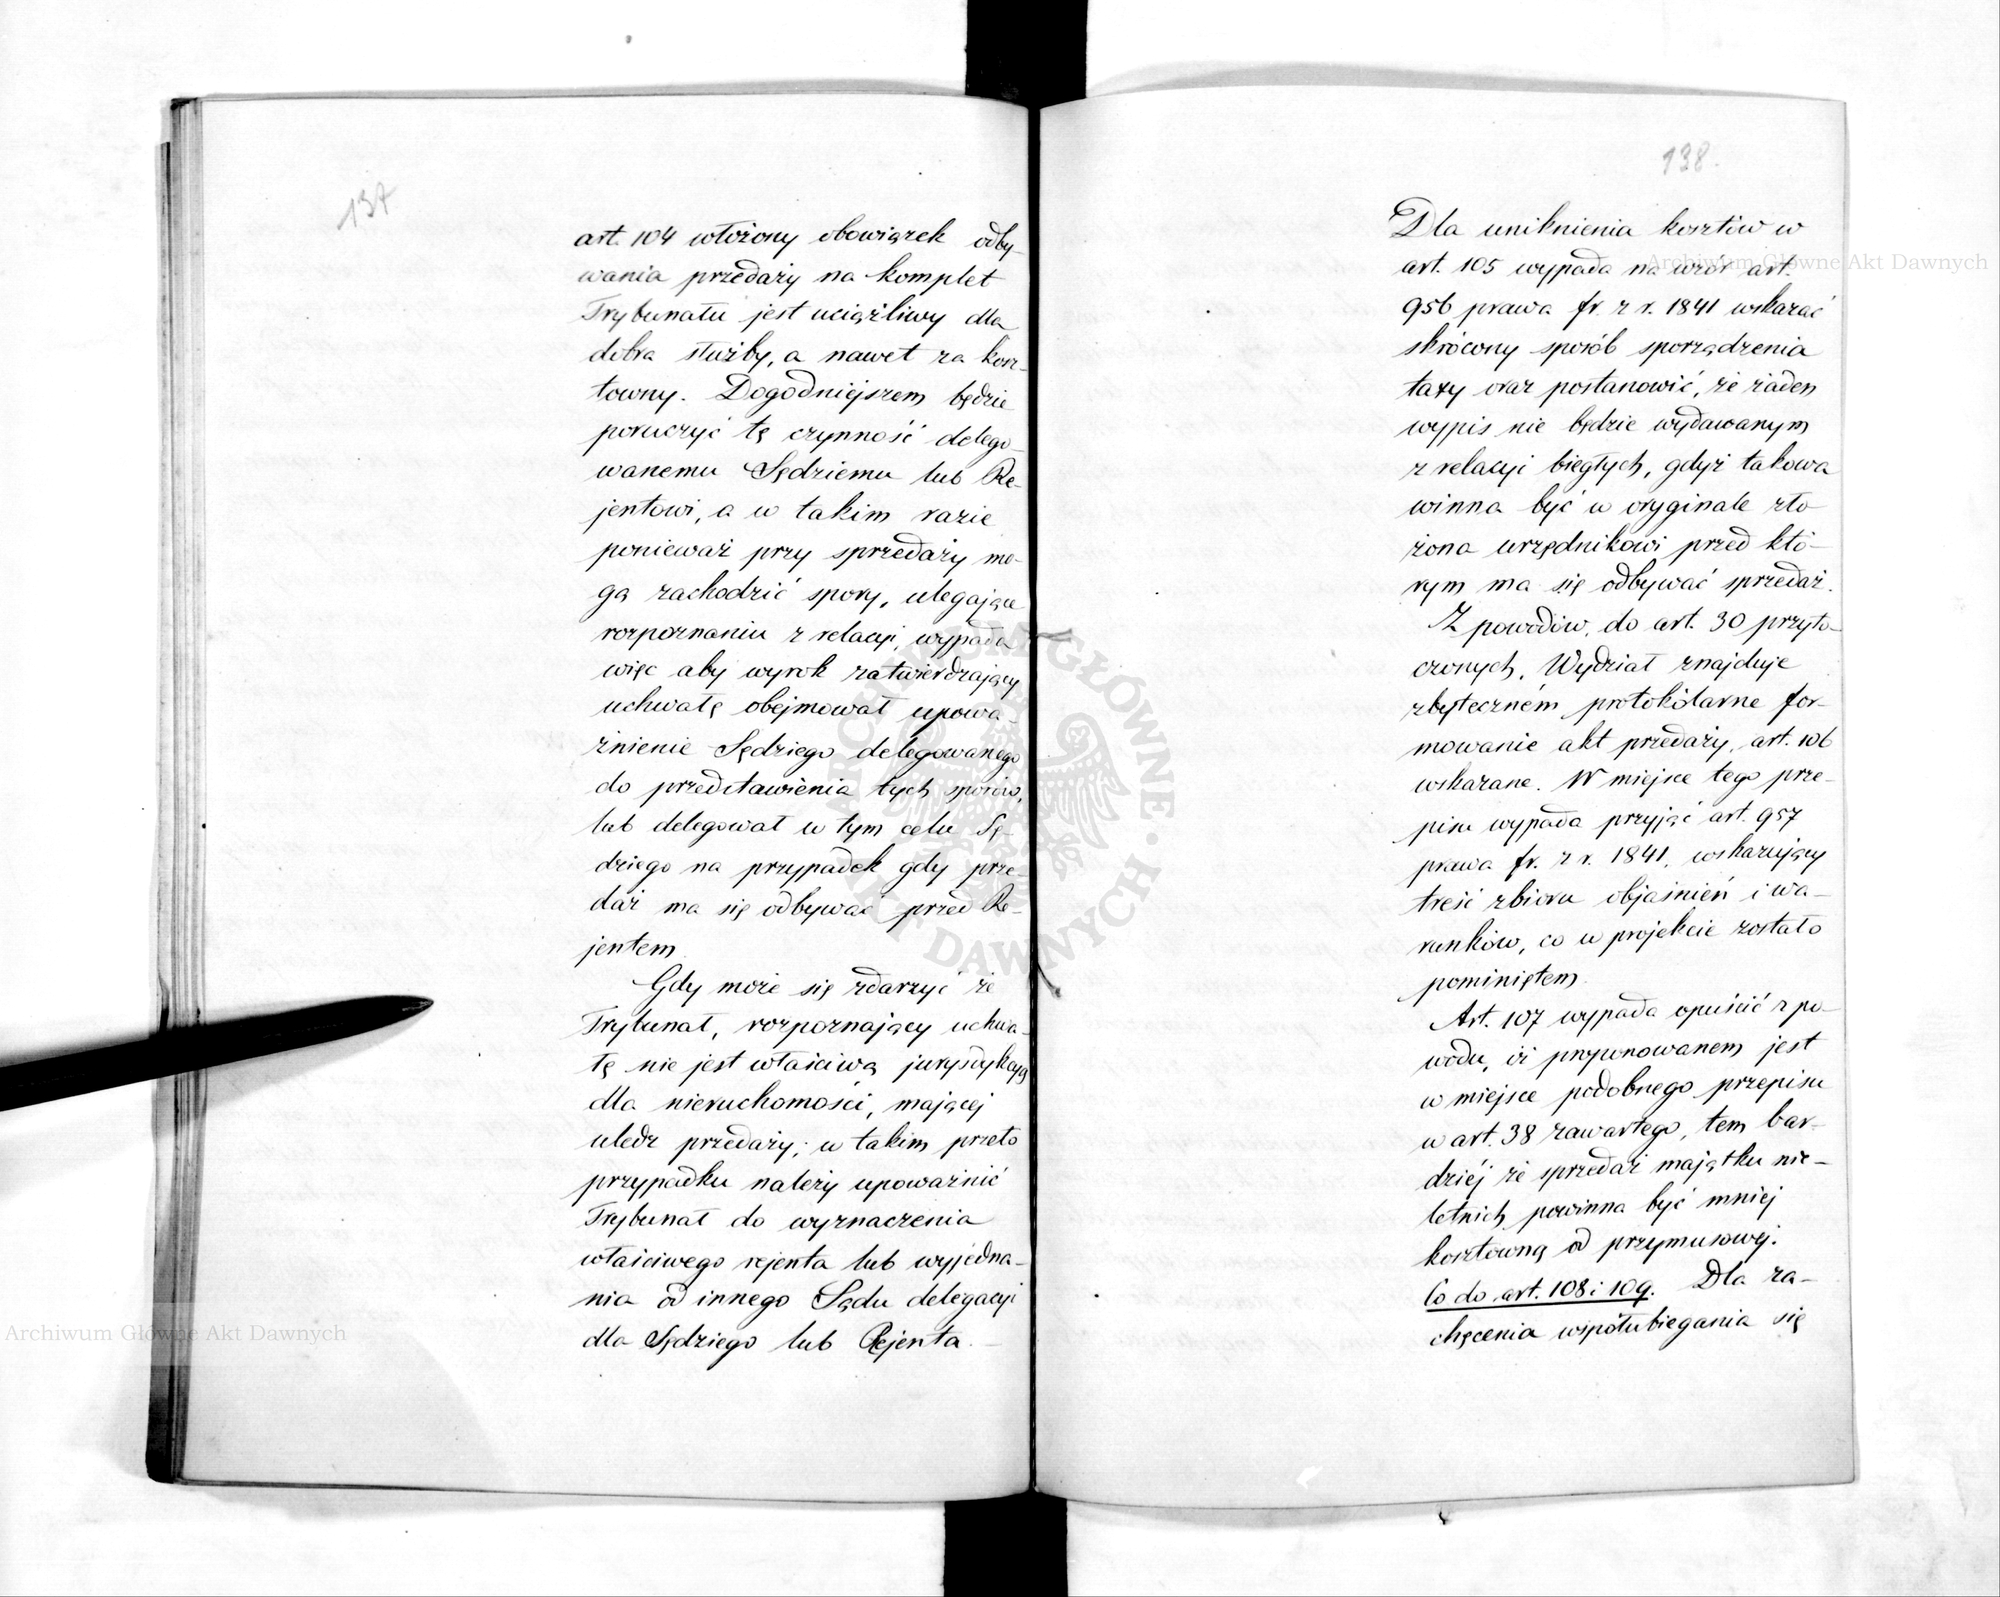 137
art. 104 włożony obowiązek odby-
wania przedaży na komplet
Trybunału jest uciążliwy dla
dobra służby, a nawet za kosz-
towny. Dogodniejszem będzie
poruczyć tę czynność delego-
wanemu Sędziemu lub Re-
jentowi, a w takim razie
ponieważ przy sprzedaży mo-
gą zachodzić spory, ulegające
rozpoznaniu z relacyi, wypada
więc aby wyrok zatwierdzający
uchwałę obejmował upowa-
żnienie Sędziego delegowanego
do przedstawienia tych sporów,
lub delegował w tym celu Sę-
dziego na przypadek gdy prze-
daż ma się odbywać przed Re-
jentem.
Gdy może się zdarzyć że
Trybunał, rozpoznający uchwa-
łę nie jest właściwą jurysdykcyą
dla nieruchomości, mającej
uledz przedaży; w takim przeto
przypadku należy upoważnić
Trybunał do wyznaczenia
właściwego rejenta lub wyjedna-
nia od innego Sądu delegacyi
dla Sędziego lub Rejenta. —
138.
Dla uniknienia kosztów w
art. 105 wypada na wzór art.
956 prawa fr. z r. 1841 wskazać
skrócony sposób sporządzenia
taxy oraz postanowić, że żaden
wypis nie będzie wydawanym
z relacyi biegłych, gdyż takowa
winna być w oryginale zło
żona urzędnikowi przed któ-
rym ma się odbywać sprzedaż.
Z powodów, do art. 30 przyto-
czonych, Wydział znajduje
zbyteczném protokólarne for-
mowanie akt przedaży, art. 106
wskazane. W miejsce tego prze-
pisu wypada przyjąć art. 957
prawa fr. z r. 1841, wskazujący
treść zbioru objaśnień i wa-
runków, co w projekcie zostało
pominiętem.
Art. 107 wypada opuścić z po-
wodu, iż przyjmowanem jest
w miejsce podobnego przepisu
w art. 38 zawartego, tem bar-
dziéj że sprzedaż majątku nie-
letnich powinna być mniej
kosztowną od przymusowej.
Co do art. 108 i 109. Dla za-
chęcenia współubiegania się
Archiwum Główne Akt Dawnych
Archiwum Główne Akt Dawnych
ARCHIWUM GŁÓWNE AKT DAWNYCH